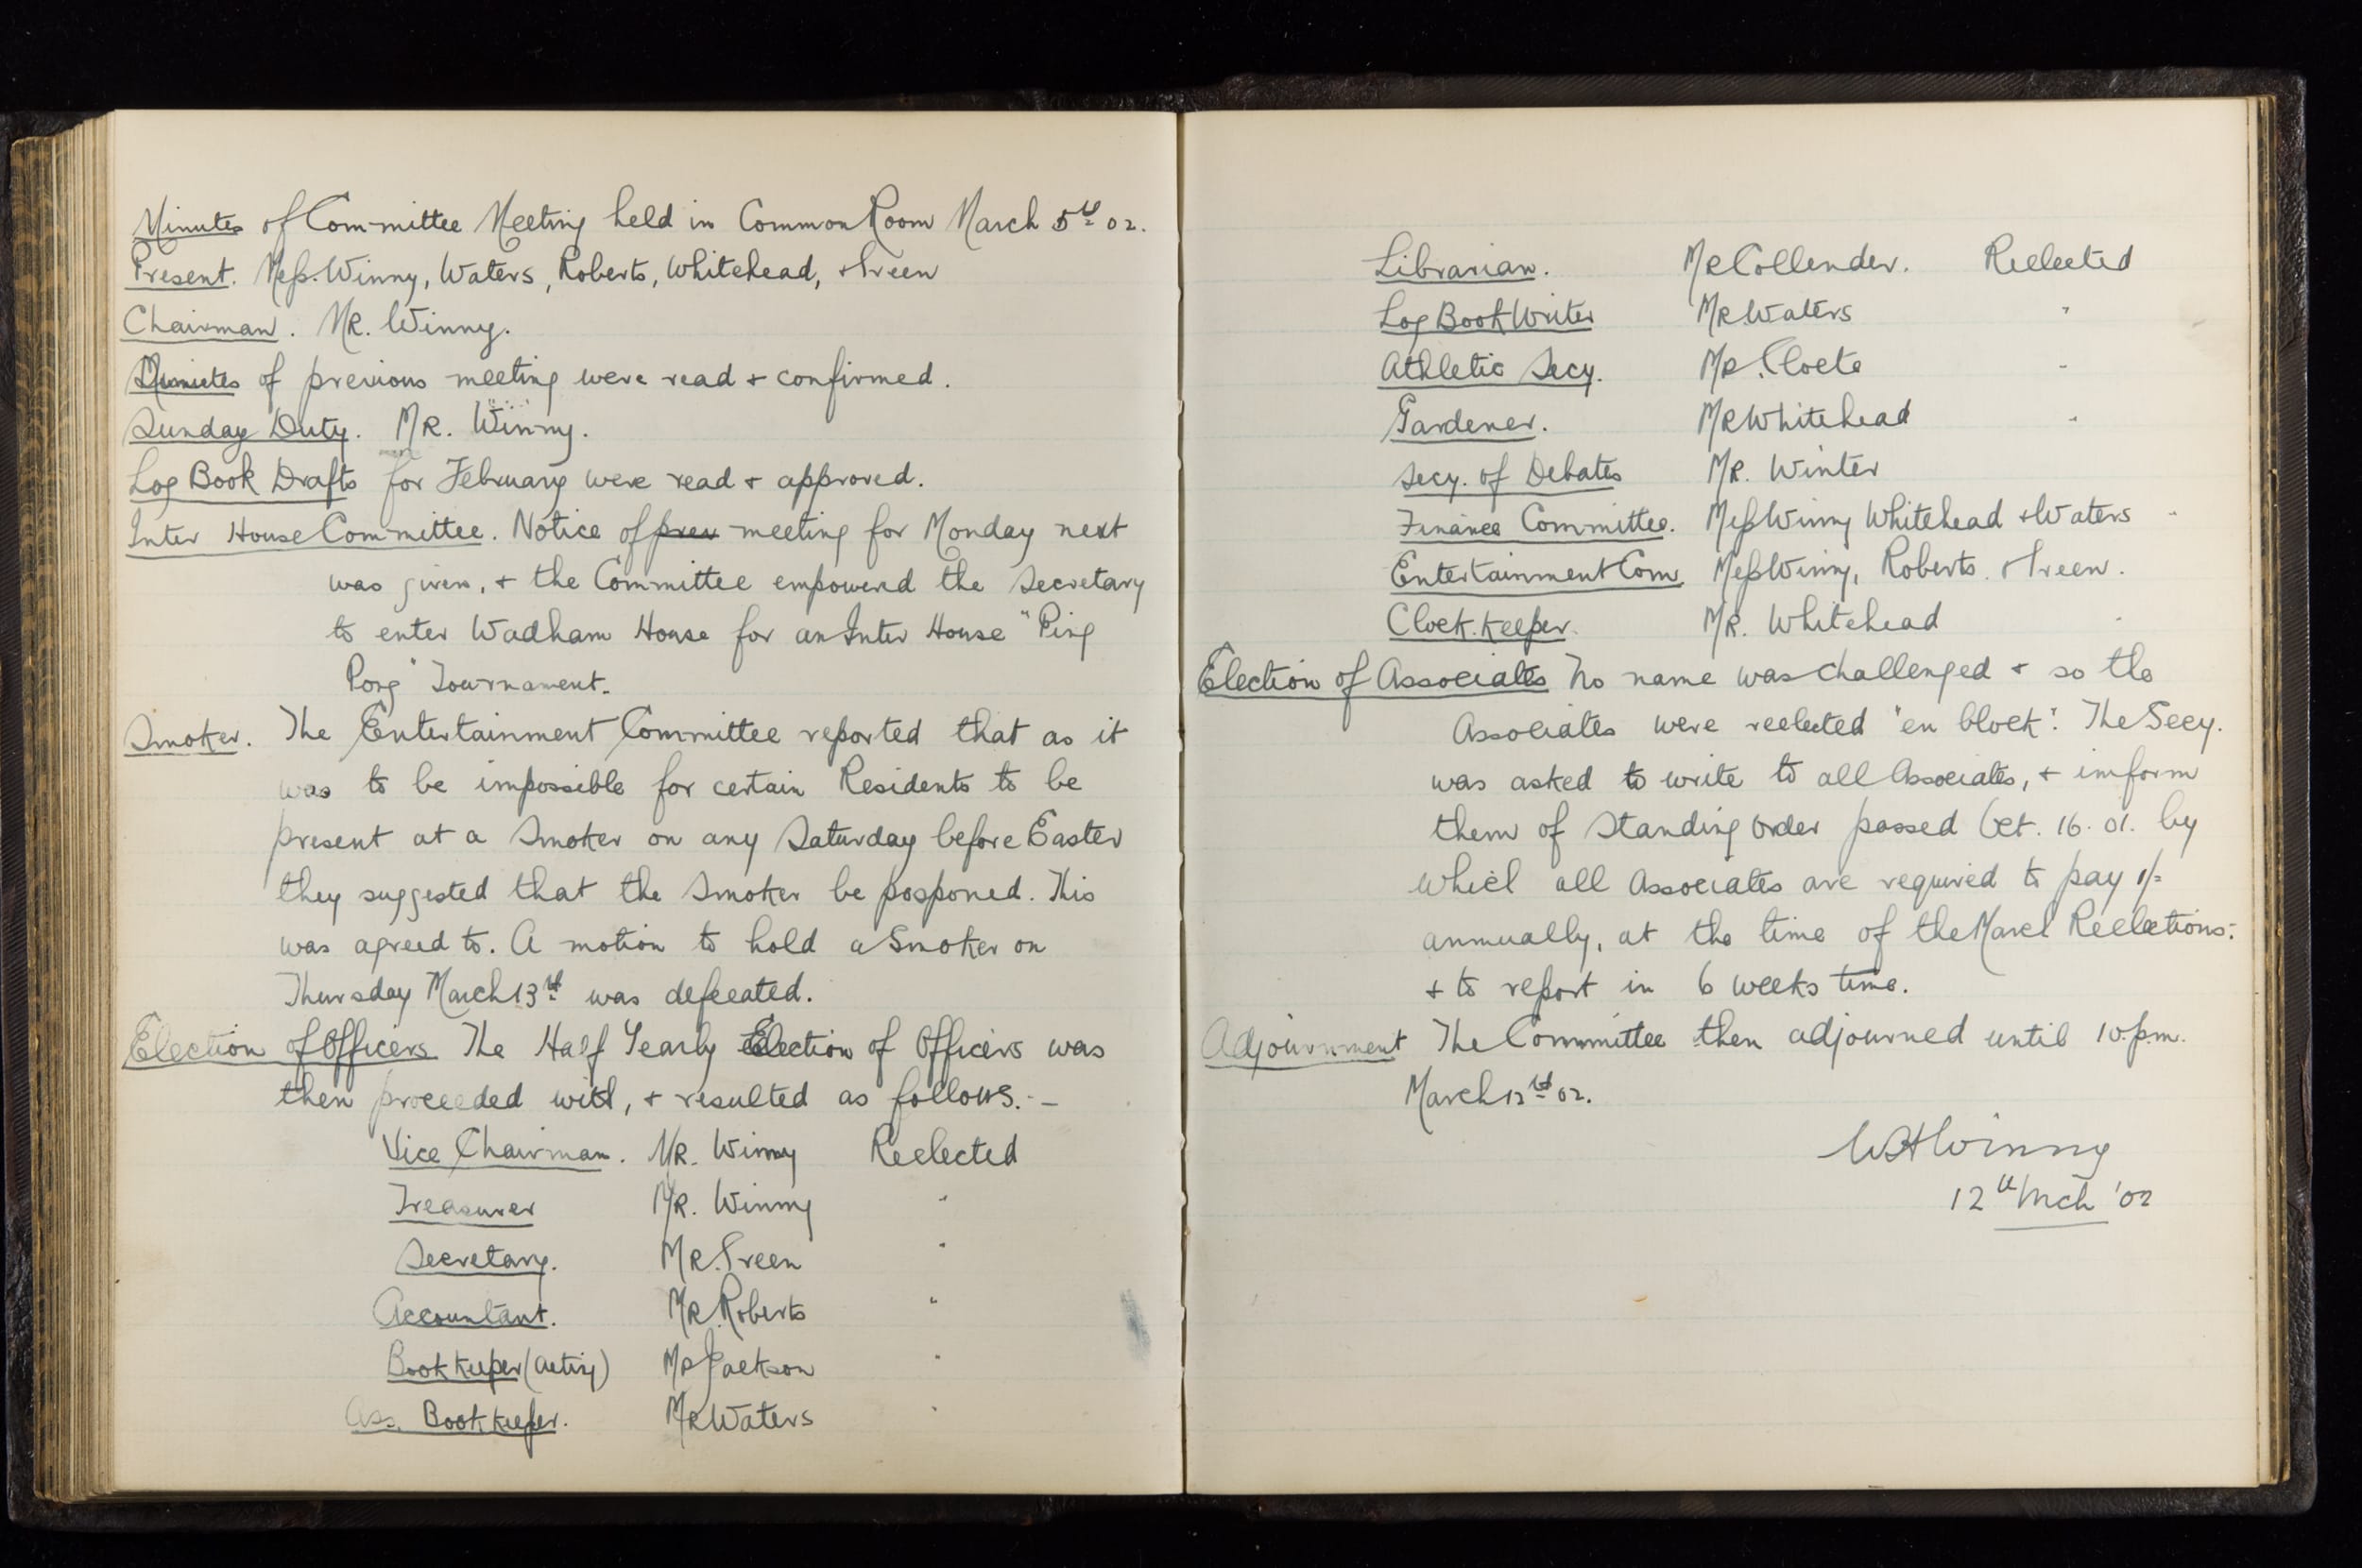 Minutes of Committee Meeting held in Common Room March 5th 02.
Present. Mess. Winny, Waters, Roberts, Whitehead, + Green
Chairman. MR. Winny.
Minutes of previous meeting were read + confirmed.
Sunday Duty. MR. Winny.
Log Book Drafts for February were read + approved.
Inter House Committee. Notice of prev meeting for Monday next
was given, + the Committee empowered the Secretary
to enter Wadham House for an Inter House "Ping
Pong" Tournament.
Smoker. The Entertainment Committee reported that as it
was to be impossible for certain Residents to be
present at a Smoker on any Saturday before Easter
they suggested that the Smoker be posponed. This
was agreed to. A motion to hold a Smoker on
Thursday March 13th was defeated.
Election of Officers The Half Yearly Election of Officers was
then proceeded with, + resulted as follows. -
Vice Chairman. MR. Winny Reelected
Treasurer MR. Winny "
Secretary. MR. Green "
Accountant. MR. Roberts "
Bookkeeper (acting) MR Jackson "
Ass. Bookkeeper. MR Waters "
Librarian. MR Collender. Reelected
Log Book Writer MR Waters "
Athletic Secy. MR. Cloete "
Gardener. MR Whitehead "
Secy. of Debates MR. Winter
Finance Committee. Mess Winny Whitehead + Waters "
Entertainment Com Mess Winny, Roberts. + Green.
Clock. keeper. MR. Whitehead "
Election of Associates No name was challenged + so the
Associates were reelected "en block". The Secy.
was asked to write to all Associates, + imform
them of Standing Order passed Oct. 16. 01. by
which all Associates are required to pay 1/-
annually, at the time of the March Reelections.
+ to report in 6 weeks time.
Adjournment The Committee then adjourned until 10.p.m.
March 12th 02.
WH Winny
12th Mch '02